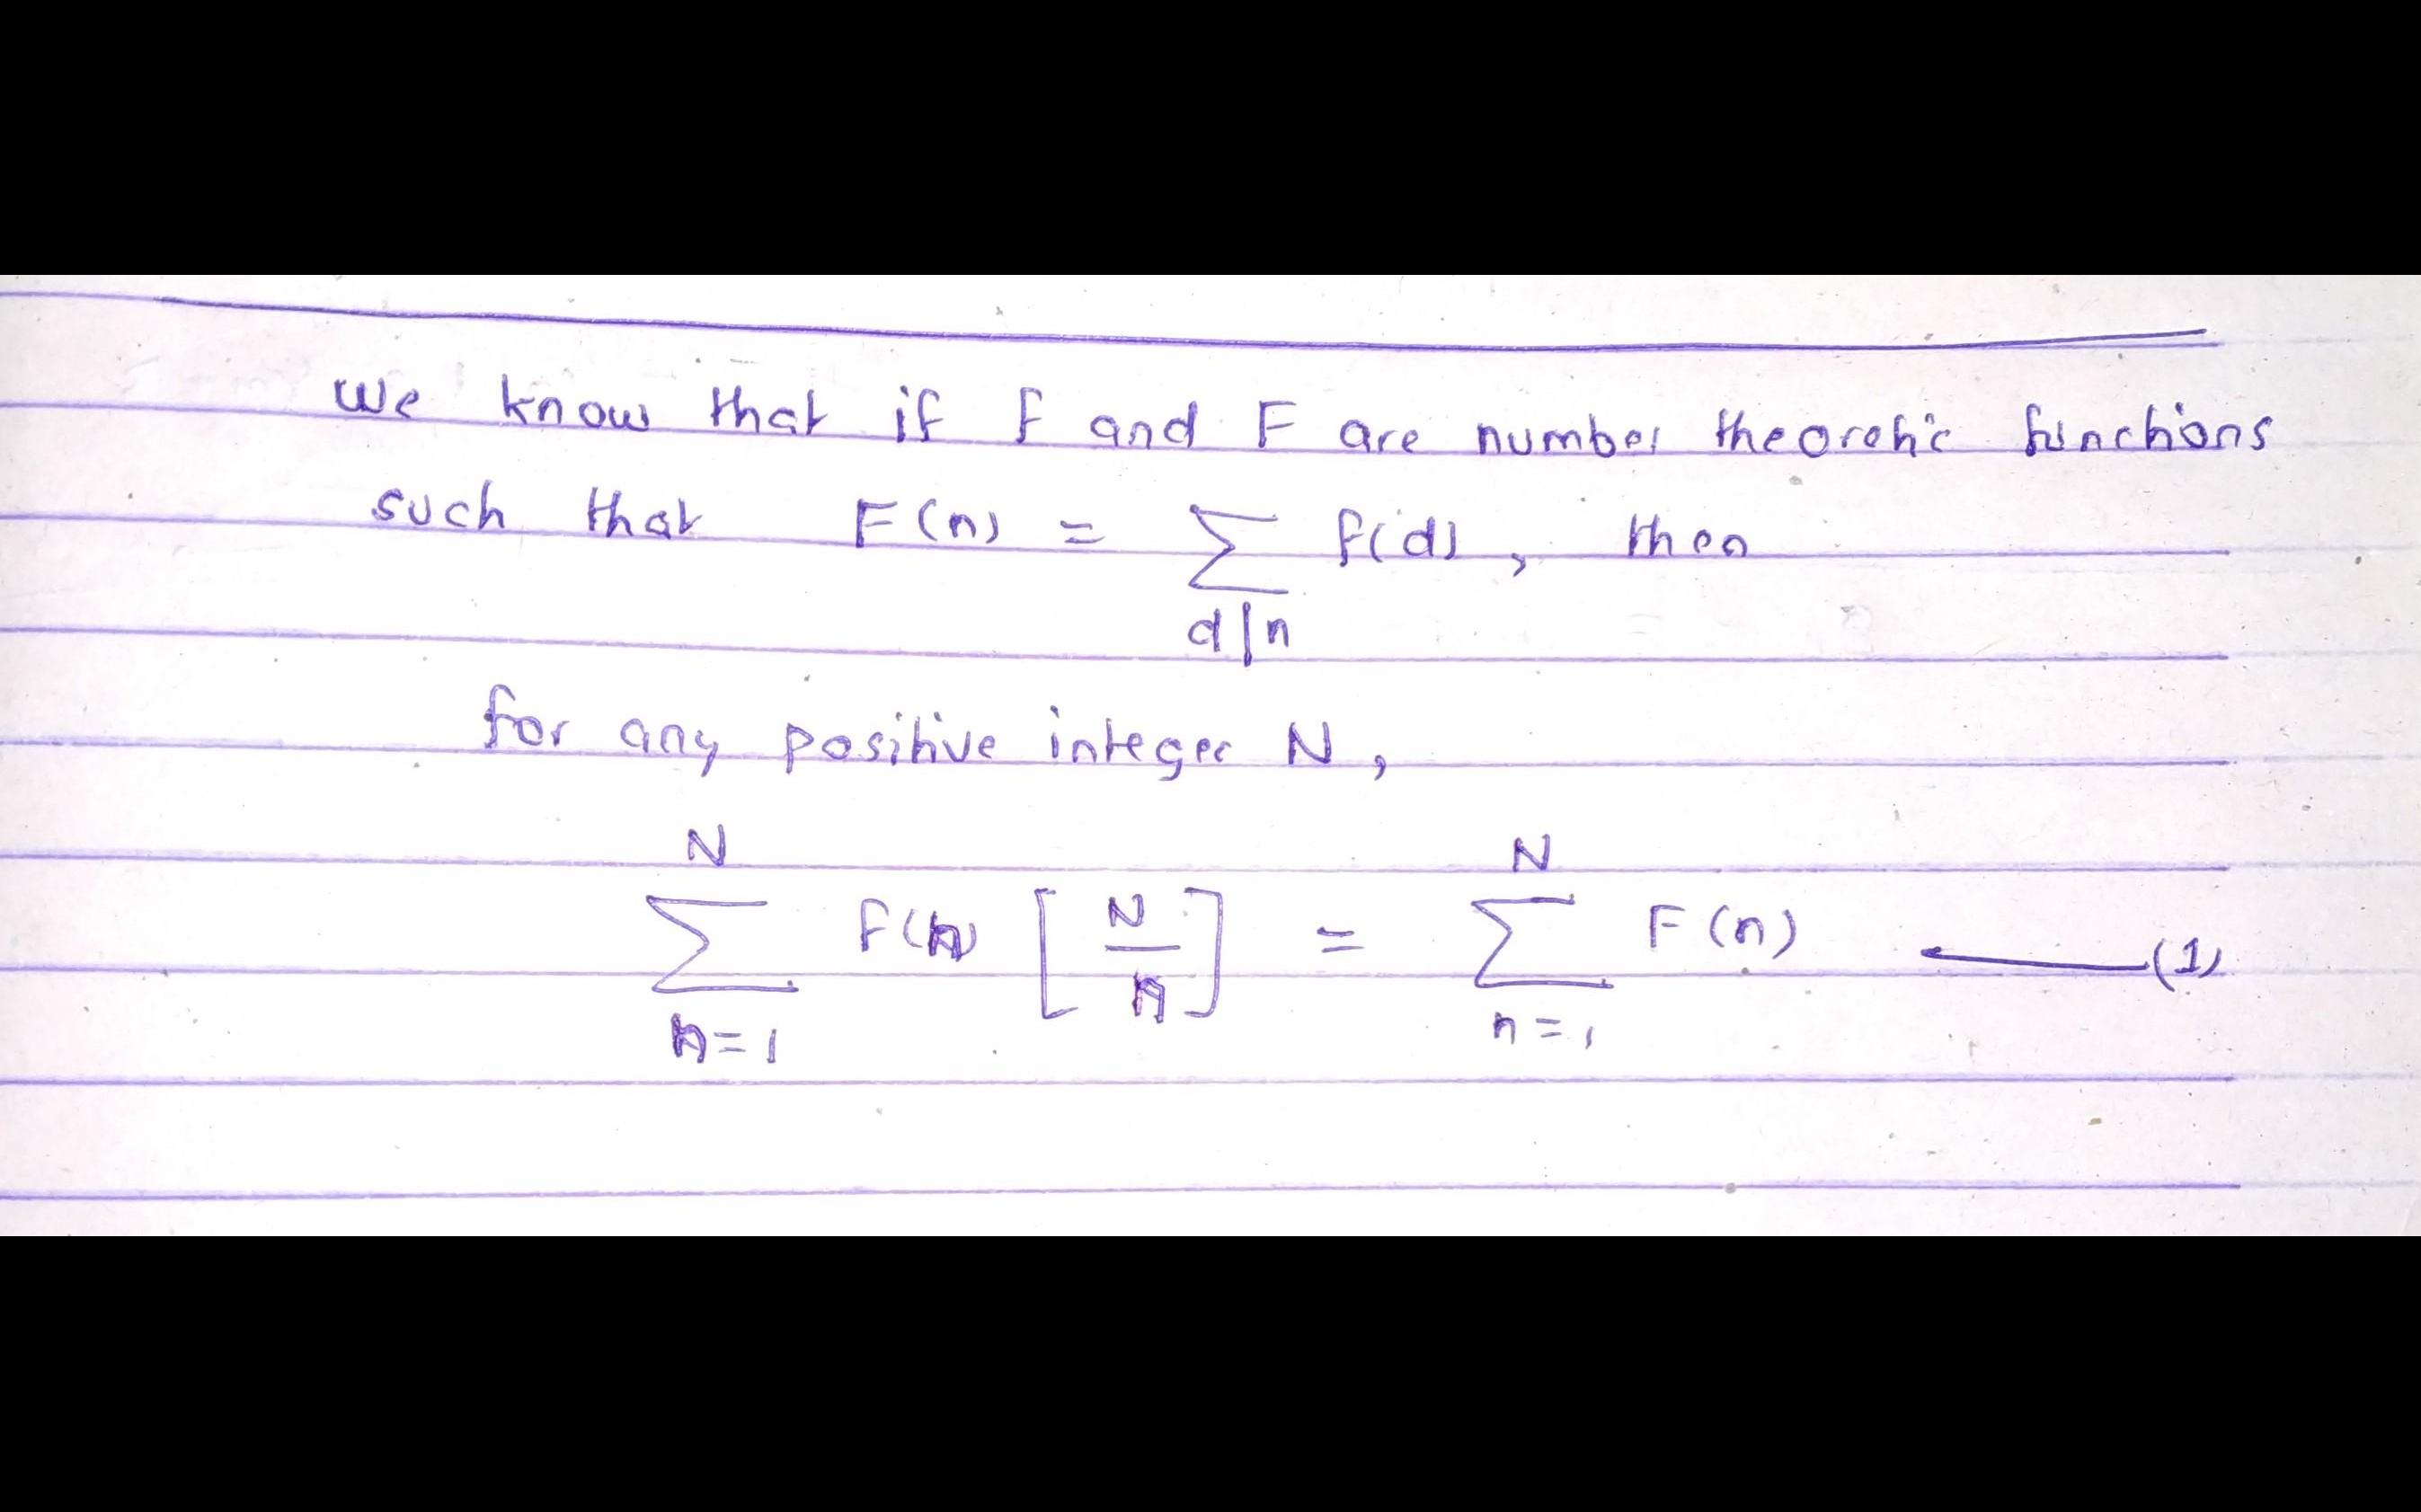 We know that if f and F are number theoretic functions
such that F(n) = ∑_{d|n} f(d), then
for any positive integer N,
∑_{n=1}^{N} f(n) [N/n] = ∑_{n=1}^{N} F(n) —(1)